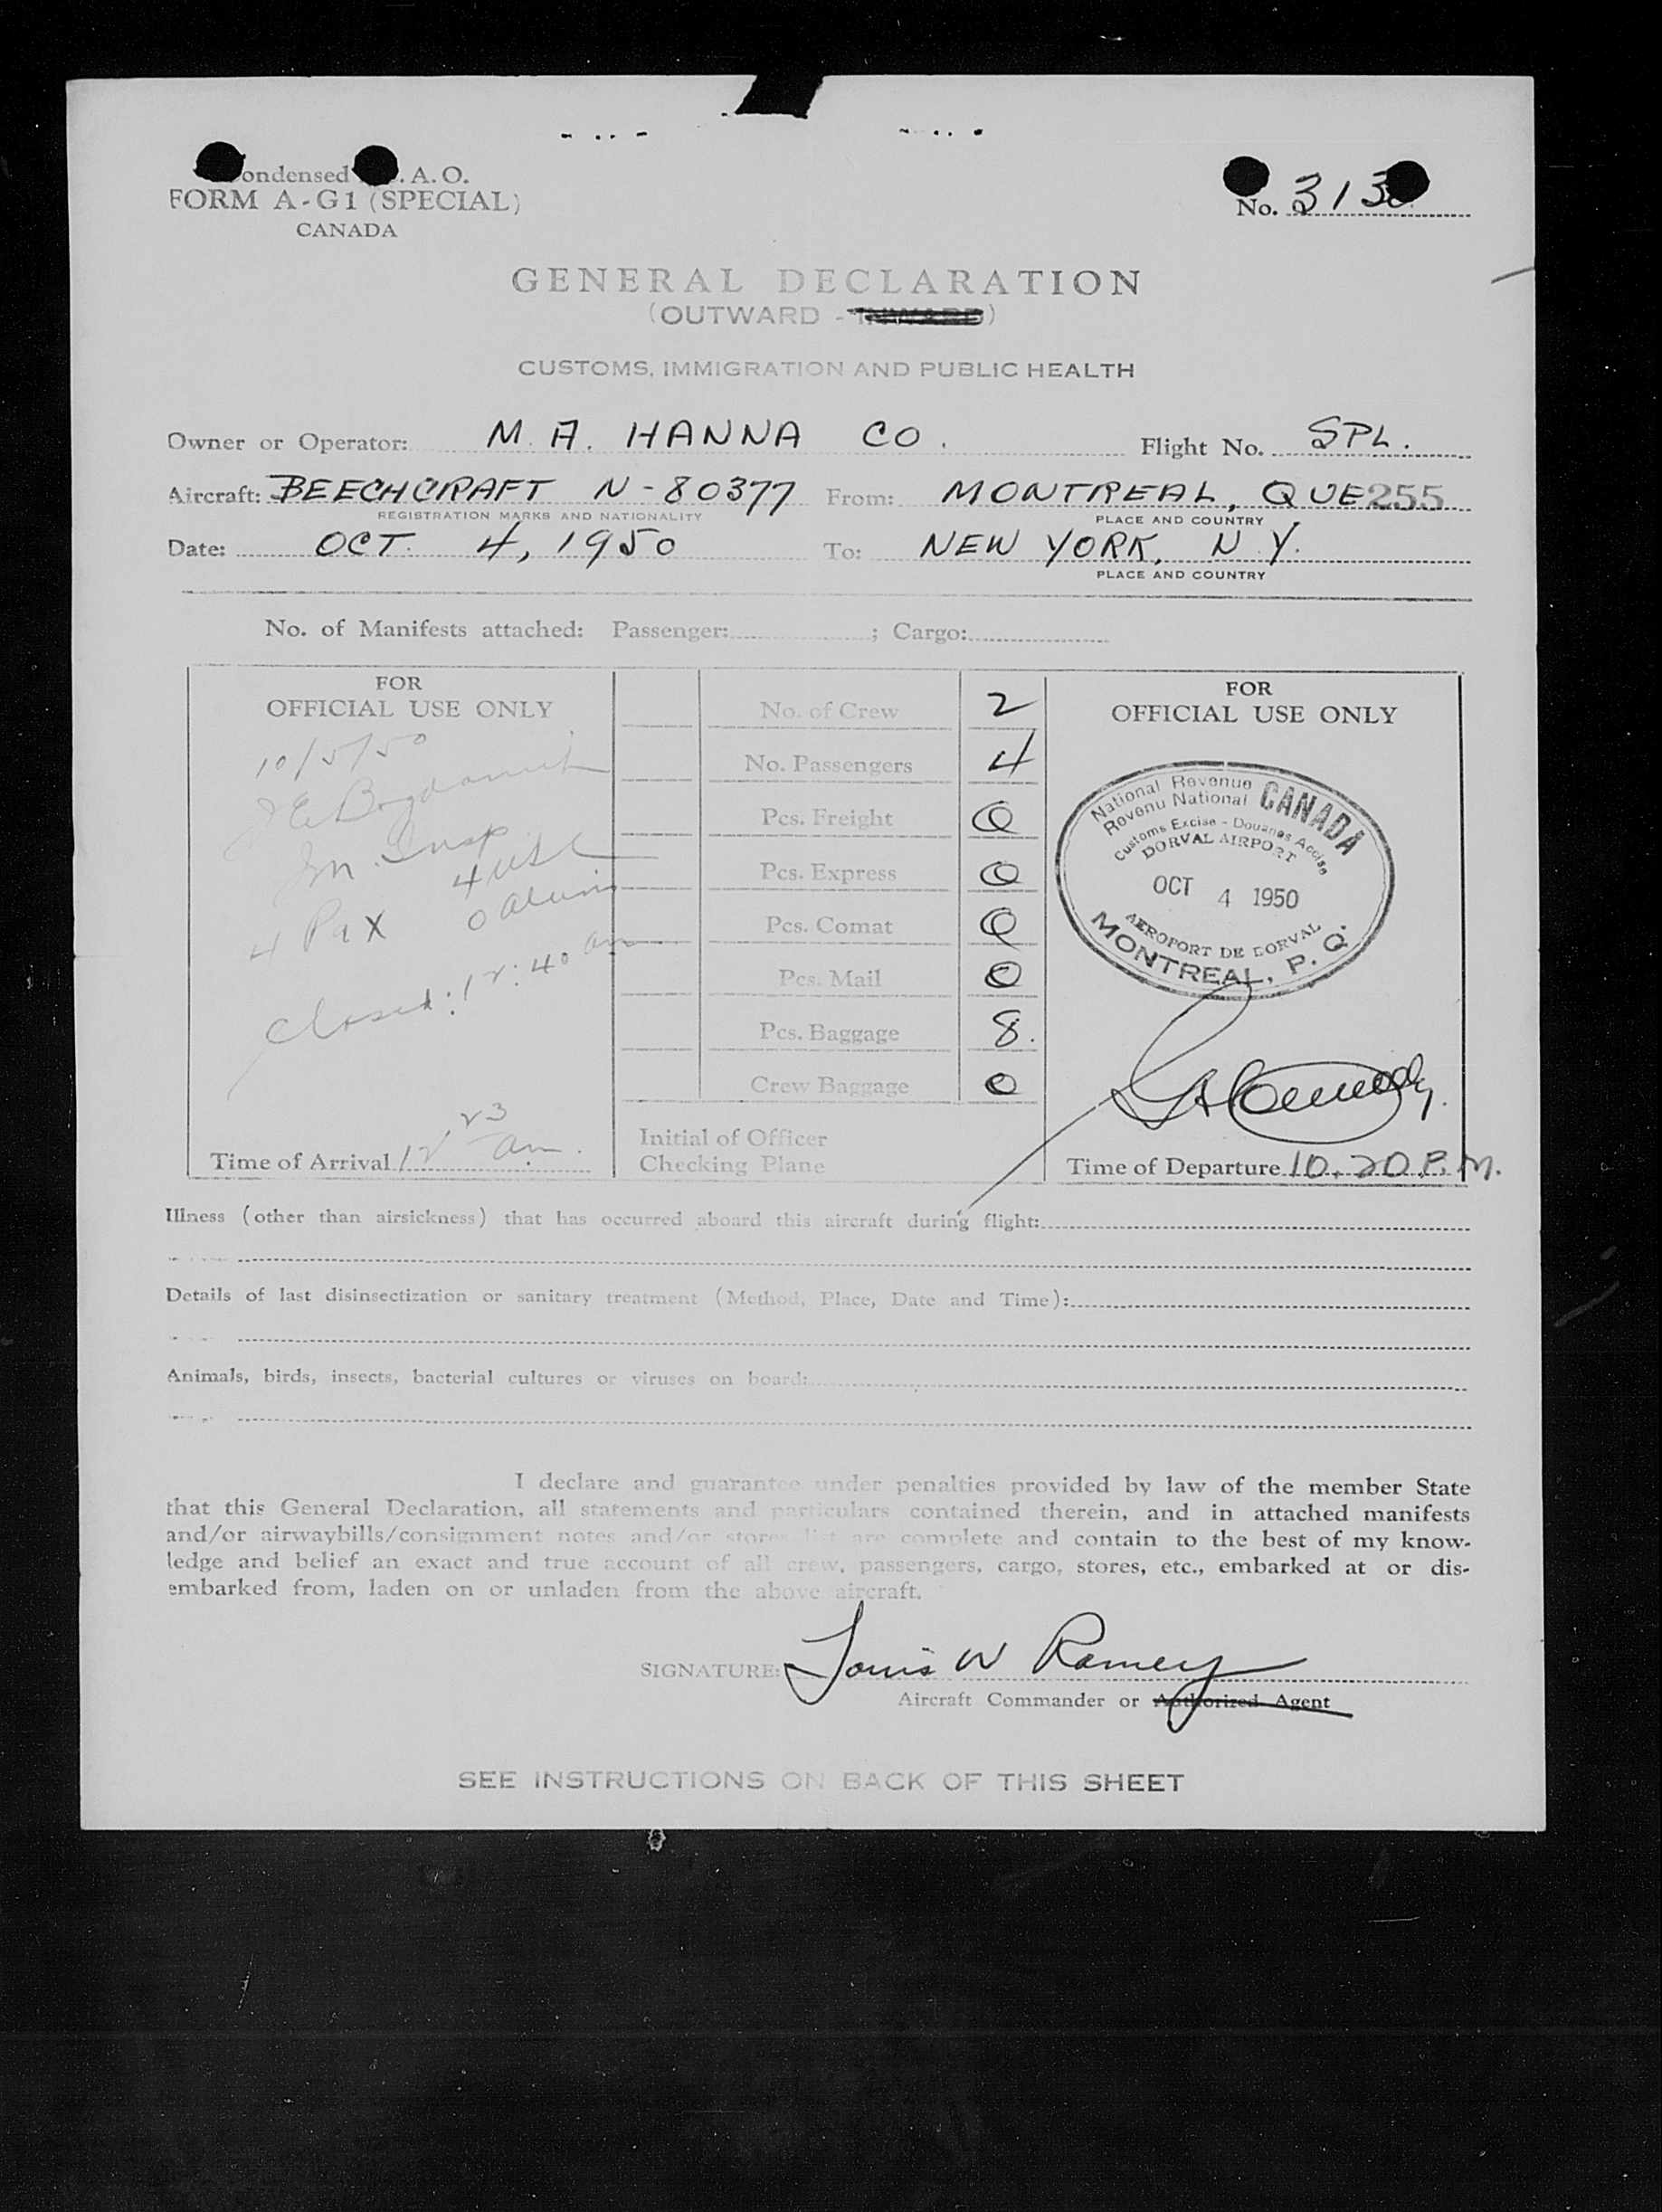 ondensed . A. O.
FORM A-G1 (SPECIAL)
CANADA
No. 313
GENERAL DECLARATION
(OUTWARD - INWARD)
CUSTOMS, IMMIGRATION AND PUBLIC HEALTH
Owner or Operator: M. A. HANNA CO. Flight No. SPL.
Aircraft: BEECHCRAFT N-80377 From: MONTREAL, QUE 255
REGISTRATION MARKS AND NATIONALITY PLACE AND COUNTRY
Date: OCT. 4, 1950 To: NEW YORK, N.Y.
PLACE AND COUNTRY
No. of Manifests attached: Passenger: ; Cargo:
FOR
OFFICIAL USE ONLY
10/5/50
Im. Insp
4 USC
4 Pax 0 aliens
Closed: 12:40 am
Time of Arrival 12 23 am.
No. of Crew 2
No. Passengers 4
Pcs. Freight 0
Pcs. Express 0
Pcs. Comat 0
Pcs. Mail 0
Pcs. Baggage 8.
Crew Baggage 0
Initial of Officer
Checking Plane
FOR
OFFICIAL USE ONLY
National Revenue CANADA
Revenu National
Customs Excise - Douanes Accise
DORVAL AIRPORT
OCT 4 1950
AEROPORT DE DORVAL
MONTREAL, P. Q.
Time of Departure 10.20 P.M.
Illness (other than airsickness) that has occurred aboard this aircraft during flight:
Details of last disinsectization or sanitary treatment (Method, Place, Date and Time):
Animals, birds, insects, bacterial cultures or viruses on board:
I declare and guarantee under penalties provided by law of the member State
that this General Declaration, all statements and particulars contained therein, and in attached manifests
and/or airwaybills/consignment notes and/or stores list are complete and contain to the best of my know-
ledge and belief an exact and true account of all crew, passengers, cargo, stores, etc., embarked at or dis-
embarked from, laden on or unladen from the above aircraft.
SIGNATURE: Louis W Ramey
Aircraft Commander or Authorized Agent
SEE INSTRUCTIONS ON BACK OF THIS SHEET